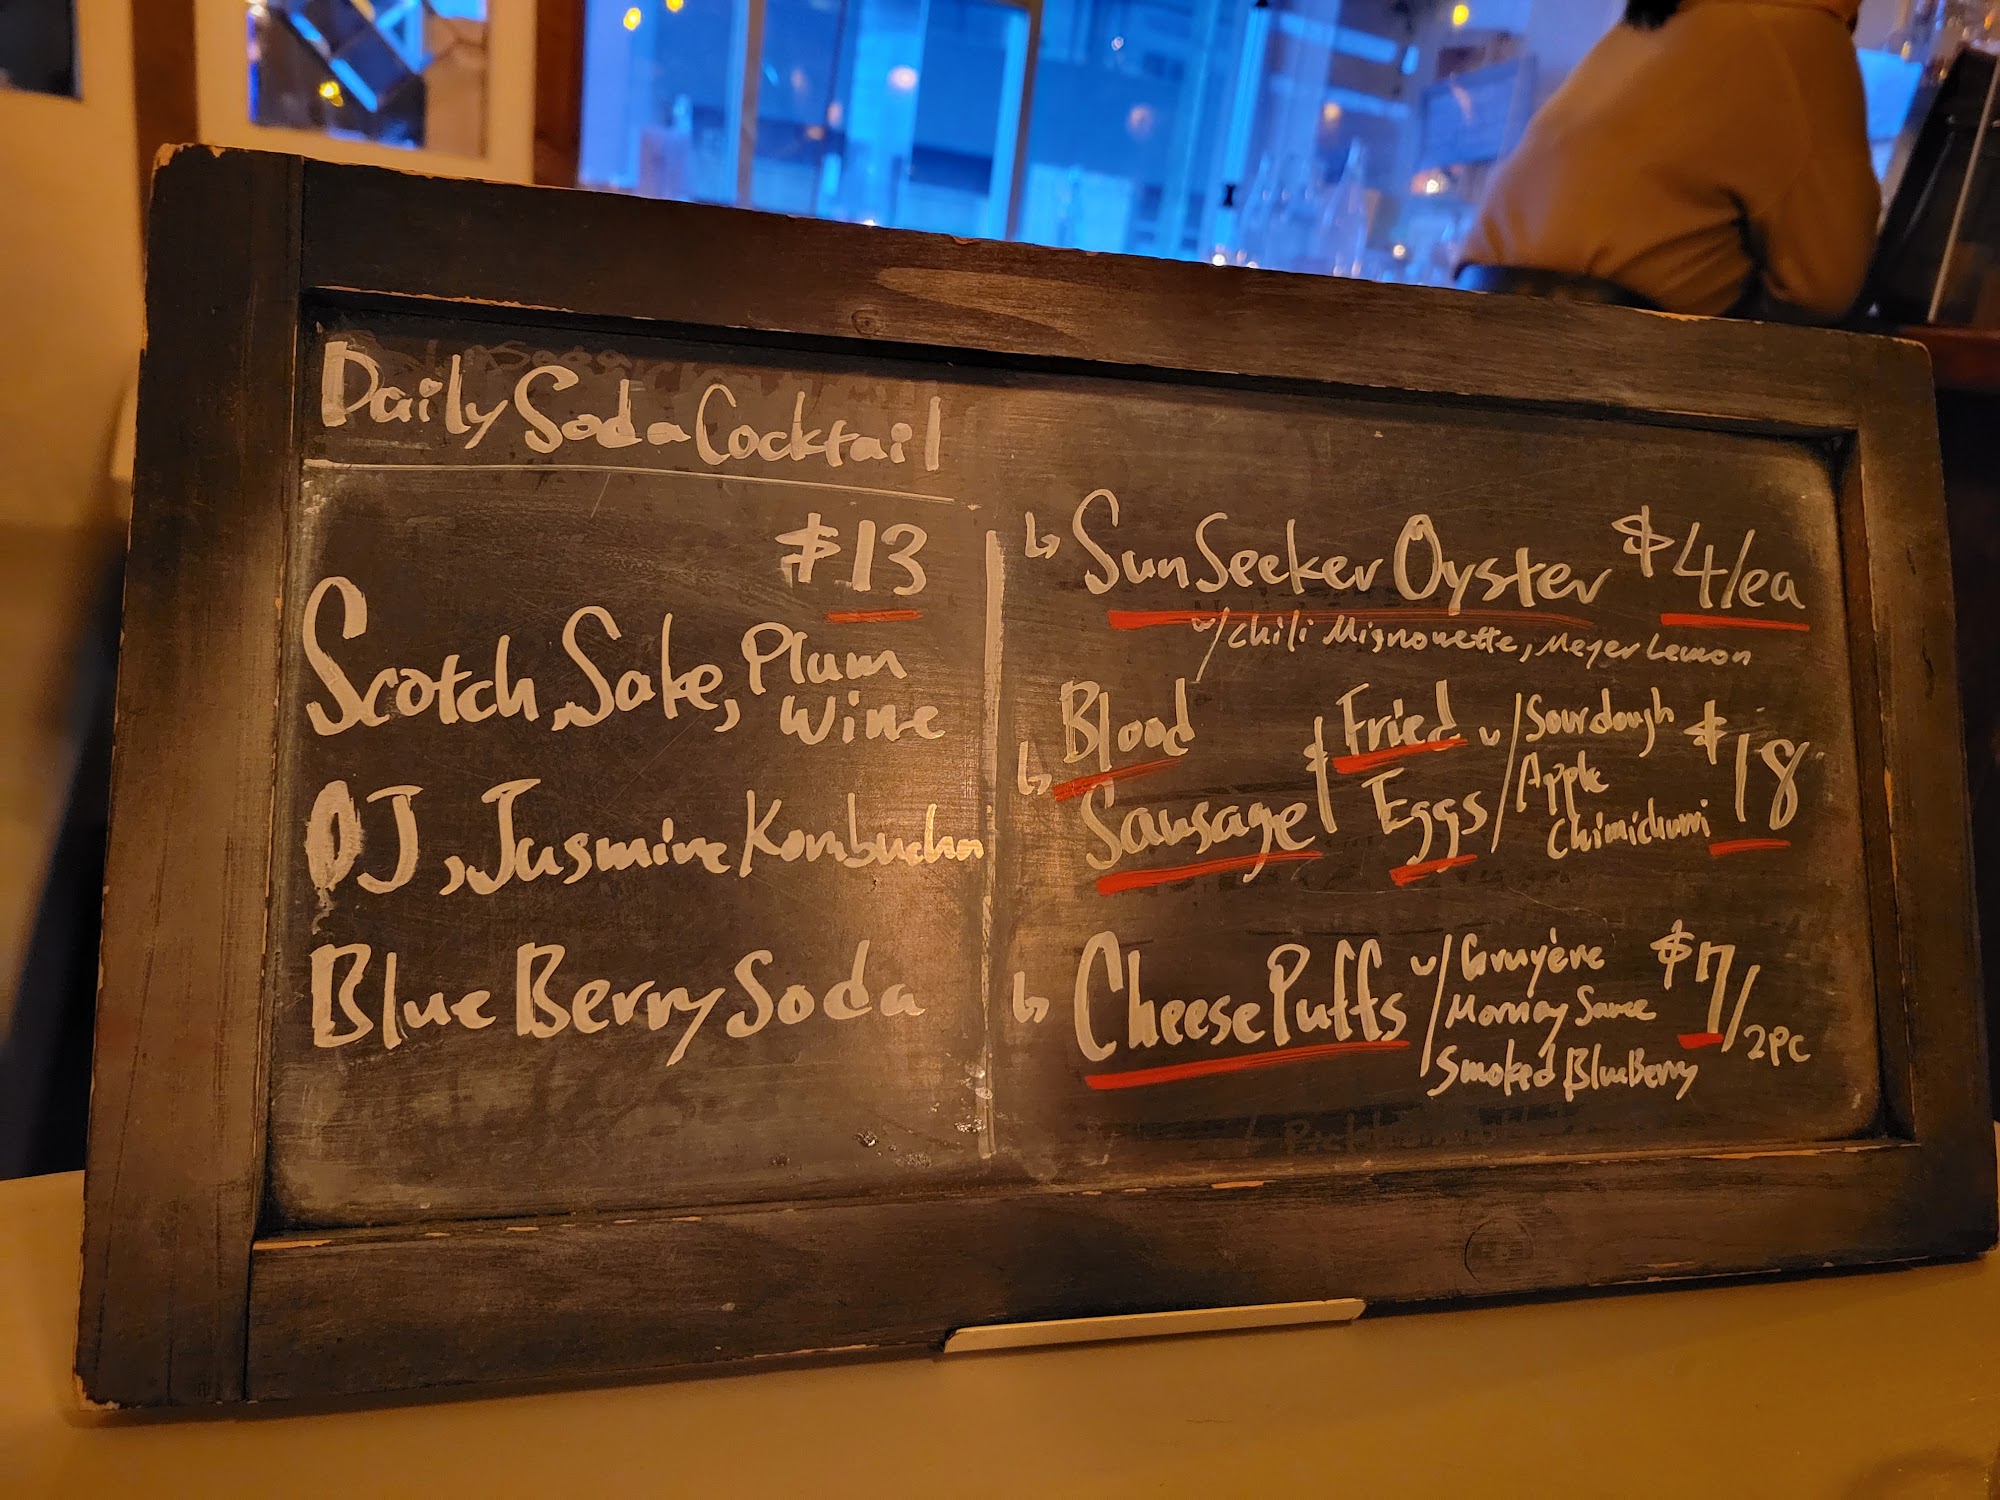 Daily Soda Cocktail
$13
Scotch, Sake, Plum
Wine
OJ, Jasmine Kombucha
BlueBerry Soda
↳ SunSeeker Oyster $4/ea
w/ Chili Mignonette, Meyer Lemon
↳ Blood
Sausage & Fried
Eggs w/ Sourdough
Apple
Chimichurri $18
↳ Cheese Puffs w/ Gruyère
Mornay Sauce
Smoked BlueBerry $7/2pc